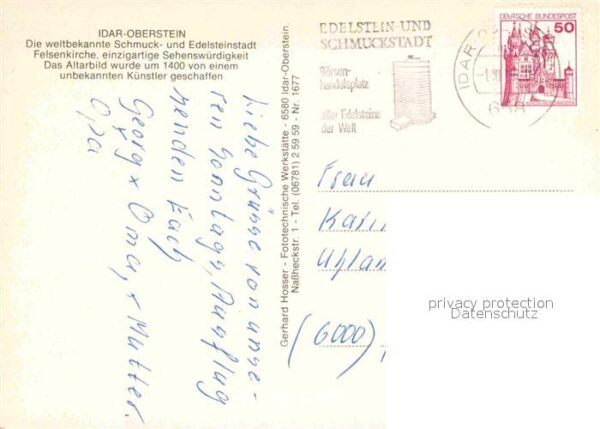 IDAR-OBERSTEIN
Die weltbekannte Schmuck- und Edelsteinstadt
Felsenkirche, einzigartige Sehenswürdigkeit
Das Altarbild wurde um 1400 von einem
unbekannten Künstler geschaffen
Liebe Grüsse von unse-
ren Sonntags, Ausflug
senden Euch
Georg + Oma, + Mutter.
Opa
Gerhard Hosser - Fototechnische Werkstätte - 6580 Idar-Oberstein
Naßheckstr. 1 - Tel. (06781) 2 59 59 - Nr. 1677
EDELSTEIN UND
SCHMUCKSTADT
Börsen-
handelsplatz
aller Edelsteine
der Welt
IDAR-O
658
DEUTSCHE BUNDESPOST
50
Frau
(6000)
privacy protection
Datenschutz